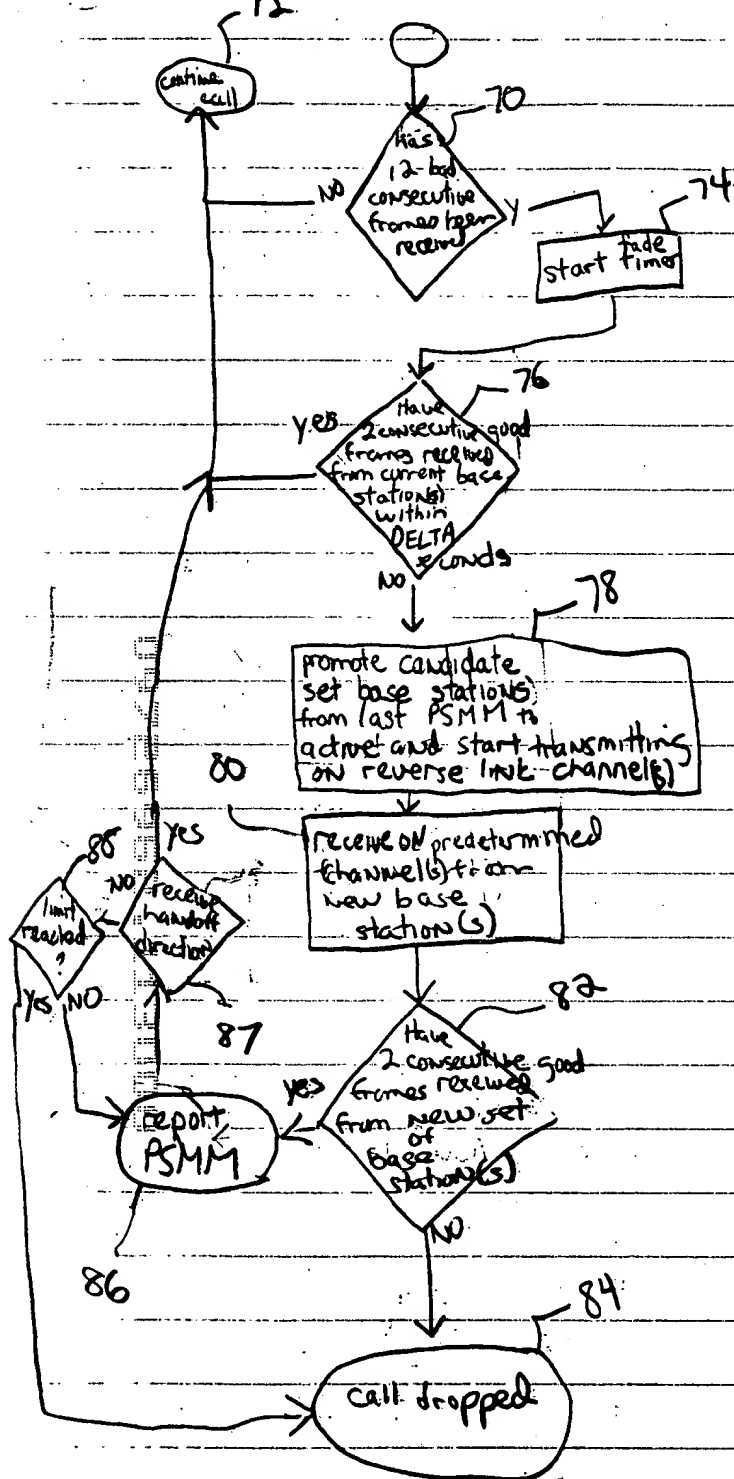 72
continue
call
70
has
12 bad
consecutive
frames been
received
NO
Y
74
start fade
timer
76
yes
Have
2 consecutive good
frames received
from current base
station(s)
within
DELTA
seconds
NO
78
promote candidate
set base station(s)
from last PSMM to
active and start transmitting
on reverse link channel(s)
80
receive on predetermined
channel(s) from
new base
station(s)
yes
88
limit
reached
?
NO
receive
handoff
direction
yes
NO
87
82
Have
2 consecutive good
frames received
from new set
of
base
station(s)
yes
report
PSMM
NO
86
84
call dropped